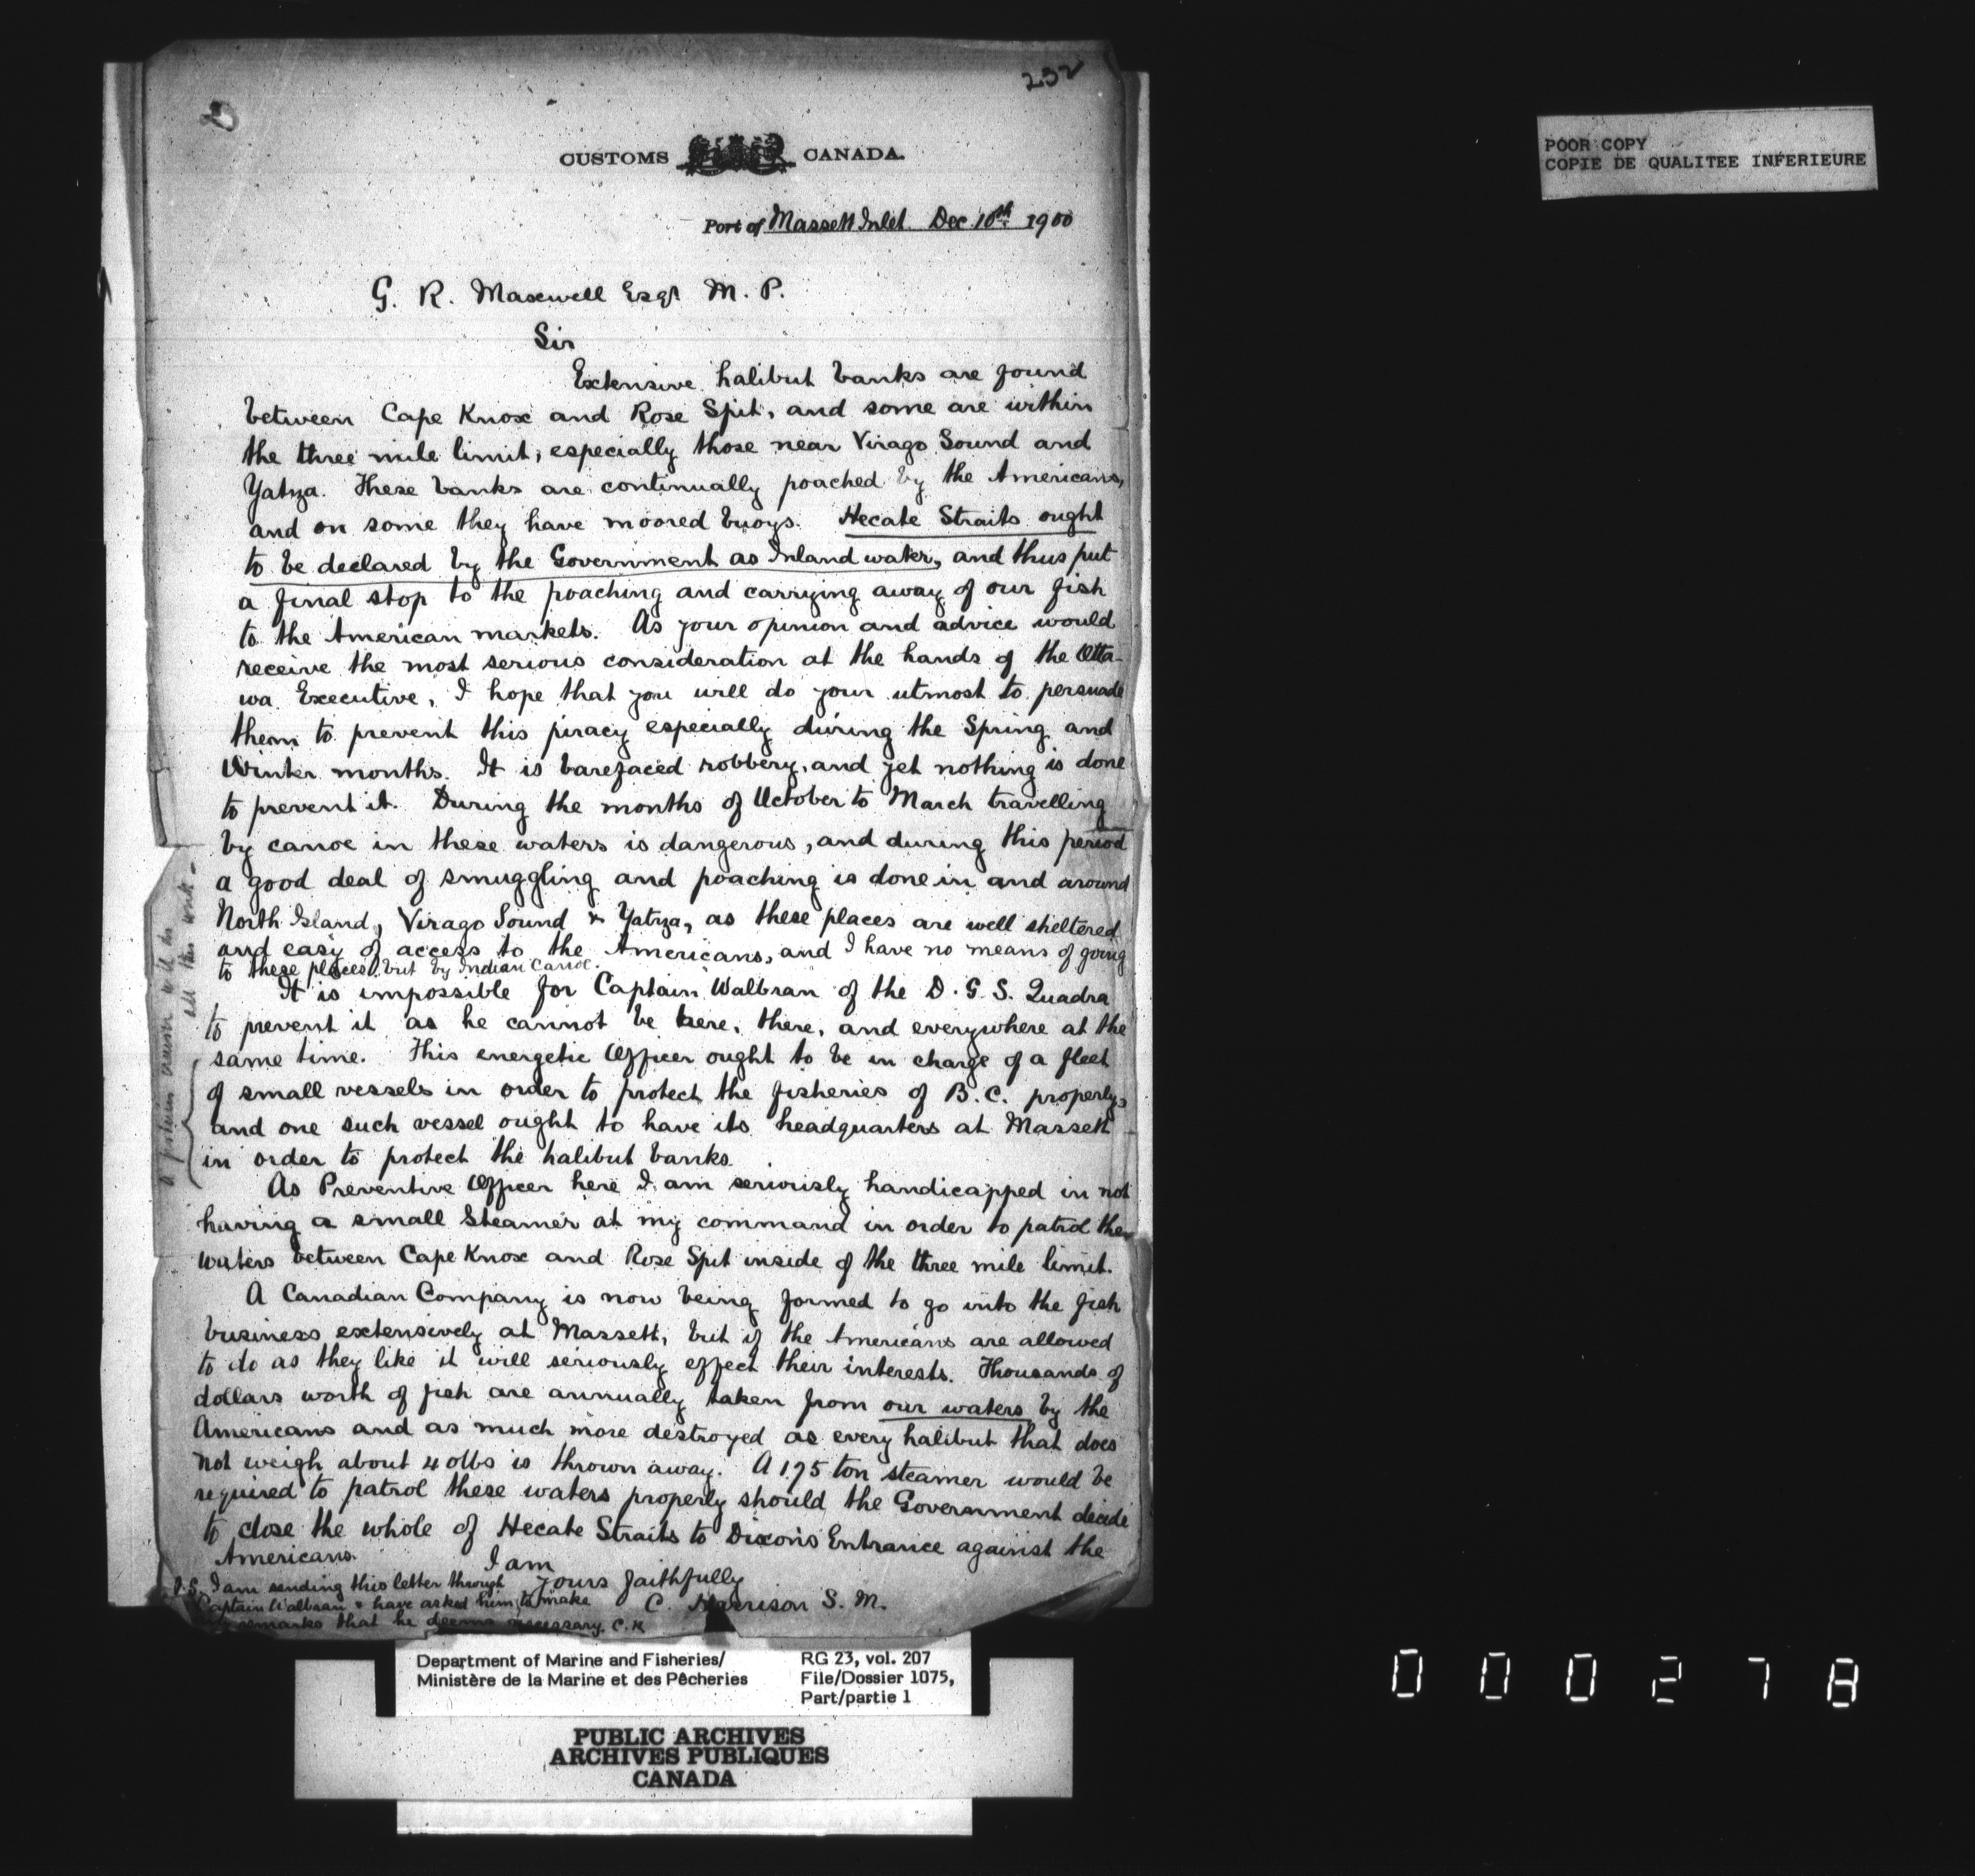 232
CUSTOMS CANADA.
Port of Massett Inlet Dec 10th 1900
G. R. Maxwell Esqr M. P.
Sir
Extensive halibut banks are found
between Cape Knox and Rose Spit, and some are within
the three mile limit, especially those near Virago Sound and
Yatza. These banks are continually poached by the Americans,
and on some they have moored buoys. Hecate Straits ought
to be declared by the Government as Inland water, and thus put
a final stop to the poaching and carrying away of our fish
to the American markets. As your opinion and advice would
receive the most serious consideration at the hands of the Otta-
wa Executive, I hope that you will do your utmost to persuade
them to prevent this piracy especially during the Spring and
Winter months. It is barefaced robbery, and yet nothing is done
to prevent it. During the months of October to March travelling
by canoe in these waters is dangerous, and during this period
a good deal of smuggling and poaching is done in and around
North Island, Virago Sound & Yatza, as these places are well sheltered
and easy of access to the Americans, and I have no means of going
to these places, but by Indian Canoe.
It is impossible for Captain Walbran of the D. G. S. Quadra
to prevent it as he cannot be here, there, and everywhere at the
same time. This energetic Officer ought to be in charge of a fleet
of small vessels in order to protect the fisheries of B.C. properly,
and one such vessel ought to have its headquarters at Massett
in order to protect the halibut banks.
As Preventive Officer here I am seriously handicapped in not
having a small Steamer at my command in order to patrol the
waters between Cape Knox and Rose Spit inside of the three mile limit.
A Canadian Company is now being formed to go into the fish
business extensively at Massett, but if the Americans are allowed
to do as they like it will seriously effect their interests. Thousands of
dollars worth of fish are annually taken from our waters by the
Americans and as much more destroyed as every halibut that does
not weigh about 40lbs is thrown away. A 175 ton steamer would be
required to patrol these waters properly should the Government decide
to close the whole of Hecate Straits to Dixon's Entrance against the
Americans.
I am
yours faithfully
C. Harrison S. M.
P.S. I am sending this letter through
Captain Walbran & have asked him to make
remarks that he deems necessary. C. H.
POOR COPY
COPIE DE QUALITEE INFERIEURE
Department of Marine and Fisheries/
Ministère de la Marine et des Pêcheries
RG 23, vol. 207
File/Dossier 1075,
Part/partie 1
PUBLIC ARCHIVES
ARCHIVES PUBLIQUES
CANADA
000278